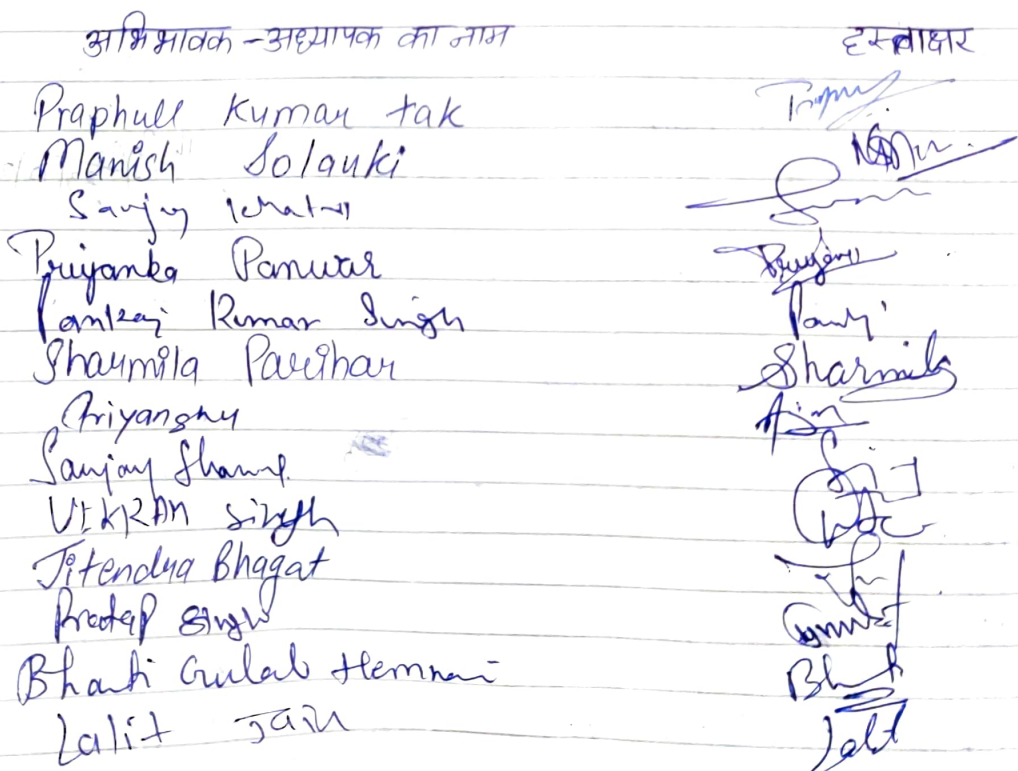 अभिभावक - अध्यापक का नाम हस्ताक्षर
Praphull Kumar tak
Manish Solanki
Sanjay
Priyanka Panwar Priyanka
Pankaj Kumar Singh Pankaj
Sharmila Parihar Sharmila
Priyanshu
Sanjay Sharma
VIKRAM Singh
Jitendra Bhagat
Pratap Singh
Bharti Gulab Hemnani
Lalit Jain Lalit